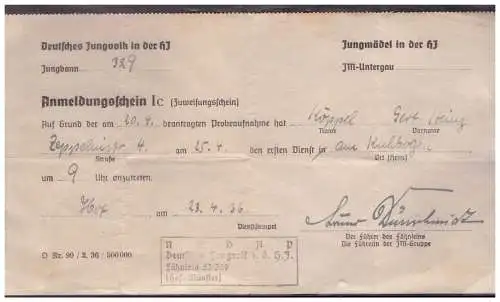 Deutsches Jungvolk in der HJ Jungmädel in der HJ
Jungbann 329 JM-Untergau
Anmeldungsschein Ic (Zuweisungsschein)
Auf Grund der am 20.4. beantragten Probeaufnahme hat Köppel Gert
Name Vorname
Zeppelinstr. 4. am 25.4. den ersten Dienst in
Straße Ort (Heim)
um 9 Uhr anzutreten.
Hof am 23.4.36
Dienststempel
Der Führer des Fähnleins
Die Führerin der JM-Gruppe
D Nr. 90 / 2. 36 / 500 000
N S D A P
Fähnlein